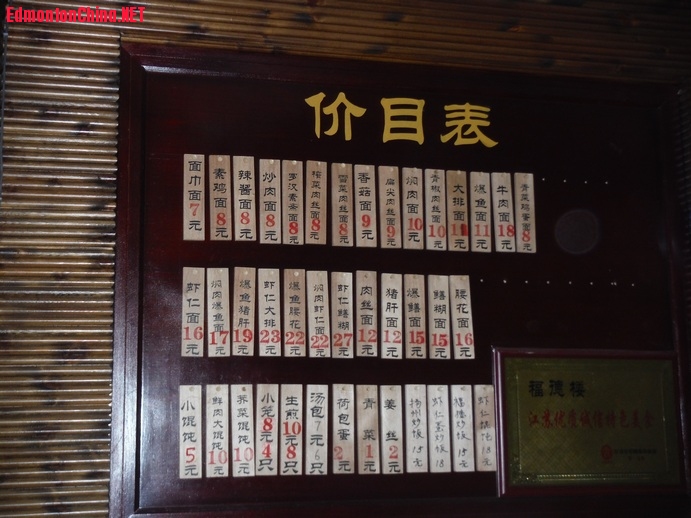 EdmontonChina.NET
价目表
面巾面7元
素鸡面8元
辣酱面8元
炒肉面8元
罗汉素面8元
榨菜肉丝面8元
雪菜肉丝面8元
香菇面9元
扁尖肉丝面9元
焖肉面10元
青椒肉丝面10元
大排面11元
爆鱼面11元
牛肉面18元
青菜鸡蛋面8元
虾仁面16元
焖肉爆鱼面17元
爆鱼猪肝19元
虾仁大排23元
爆鱼腰花22元
焖肉虾仁面22元
虾仁鳝糊27元
肉丝面12元
猪肝面12元
爆鳝面15元
鳝糊面15元
腰花面16元
小馄饨5元
鲜肉大馄饨10元
荠菜馄饨10元
小笼8元4只
生煎10元8只
汤包7元6只
荷包蛋2元
青菜1元
姜丝2元
扬州炒饭15元
虾仁蛋炒饭18
炒饭15元
虾仁馄饨18元
福德楼
江苏优质诚信特色美食